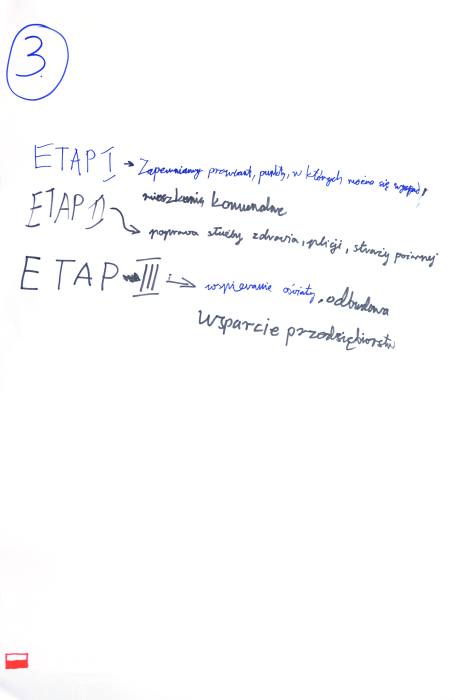 3.
ETAP I → Zapewniamy prowiant, punkty, w których można się wyspać,
mieszkania komunalne
ETAP II → poprawa służby zdrowia, policji, straży pożarnej
ETAP III → wspieranie oświaty, odbudowa
wsparcie przedsiębiorstw